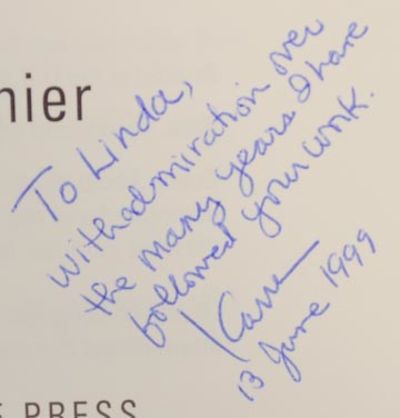 nier
To Linda,
with admiration over
the many years I have
followed your work.
13 June 1999
E PRESS